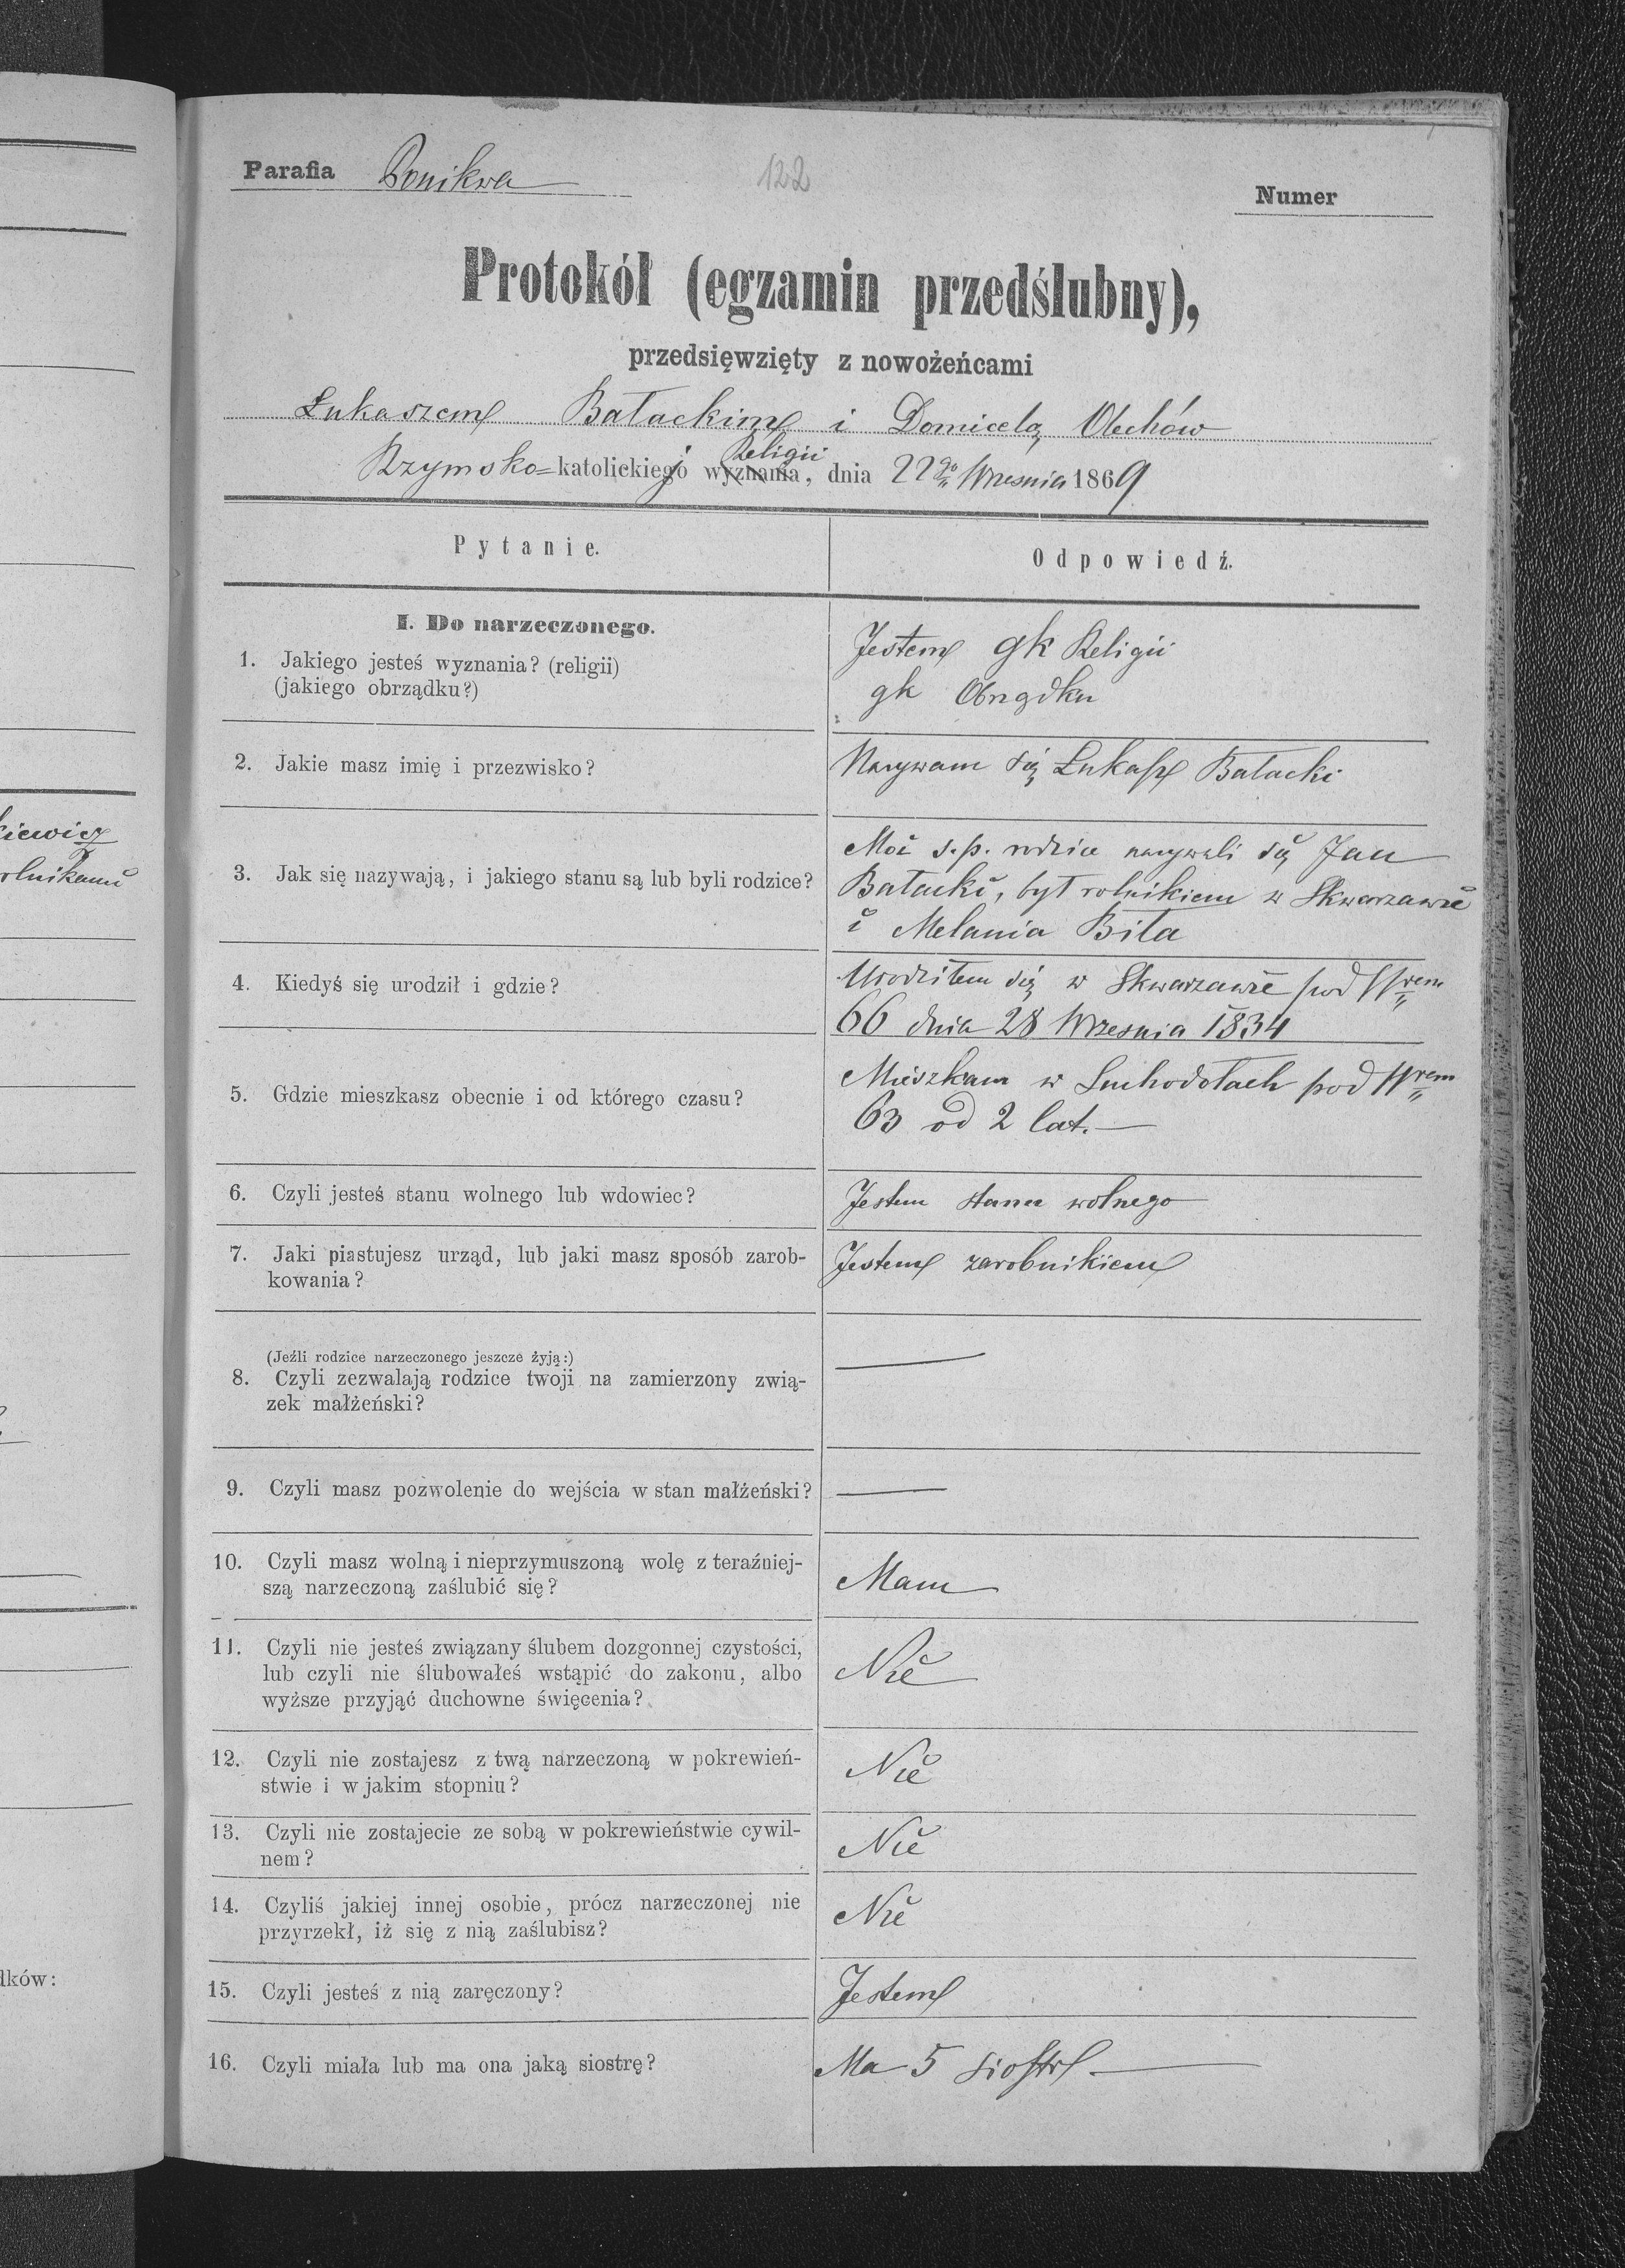 kiewicz
rolnikami
dków:
Parafia Ponikwa
122
Numer
Protokół (egzamin przedślubny),
przedsięwzięty z nowożeńcami
Łukaszem Bałackim i Domicelą Olechów
Religii
Rzymsko=katolickiej wyznania, dnia 22go Wrzesnia 1869
Pytanie.
Odpowiedź.
I. Do narzeczonego.
1. Jakiego jesteś wyznania? (religii)
(jakiego obrządku?)
Jestem gk Religii
gk Obrządku
2. Jakie masz imię i przezwisko?
Nazywam się Łukasz Bałacki
3. Jak się nazywają, i jakiego stanu są lub byli rodzice?
Moi s.p. rodzice nazywali się Jan
Bałacki, był rolnikiem w Skwarzawie
i Melania Biła
4. Kiedyś się urodził i gdzie?
Urodziłem się w Skwarzawie pod Nrem
66 dnia 28 Wrzesnia 1834
5. Gdzie mieszkasz obecnie i od którego czasu?
Mieszkam w Suchodołach pod Nrem
63 od 2 lat.—
6. Czyli jesteś stanu wolnego lub wdowiec?
Jestem stanu wolnego
7. Jaki piastujesz urząd, lub jaki masz sposób zarob-
kowania?
Jestem zarobnikiem
(Jeźli rodzice narzeczonego jeszcze żyją:)
8. Czyli zezwalają rodzice twoji na zamierzony zwią-
zek małżeński?
—
9. Czyli masz pozwolenie do wejścia w stan małżeński?
—
10. Czyli masz wolną i nieprzymuszoną wolę z teraźniej-
szą narzeczoną zaślubić się?
Mam
11. Czyli nie jesteś związany ślubem dozgonnej czystości,
lub czyli nie ślubowałeś wstąpić do zakonu, albo
wyższe przyjąć duchowne święcenia?
Nie
12. Czyli nie zostajesz z twą narzeczoną w pokrewień-
stwie i w jakim stopniu?
Nie
13. Czyli nie zostajecie ze sobą w pokrewieństwie cywil-
nem?
Nie
14. Czyliś jakiej innej osobie, prócz narzeczonej nie
przyrzekł, iż się z nią zaślubisz?
Nie
15. Czyli jesteś z nią zaręczony?
Jestem
16. Czyli miała lub ma ona jaką siostrę?
Ma 5 siostr.—